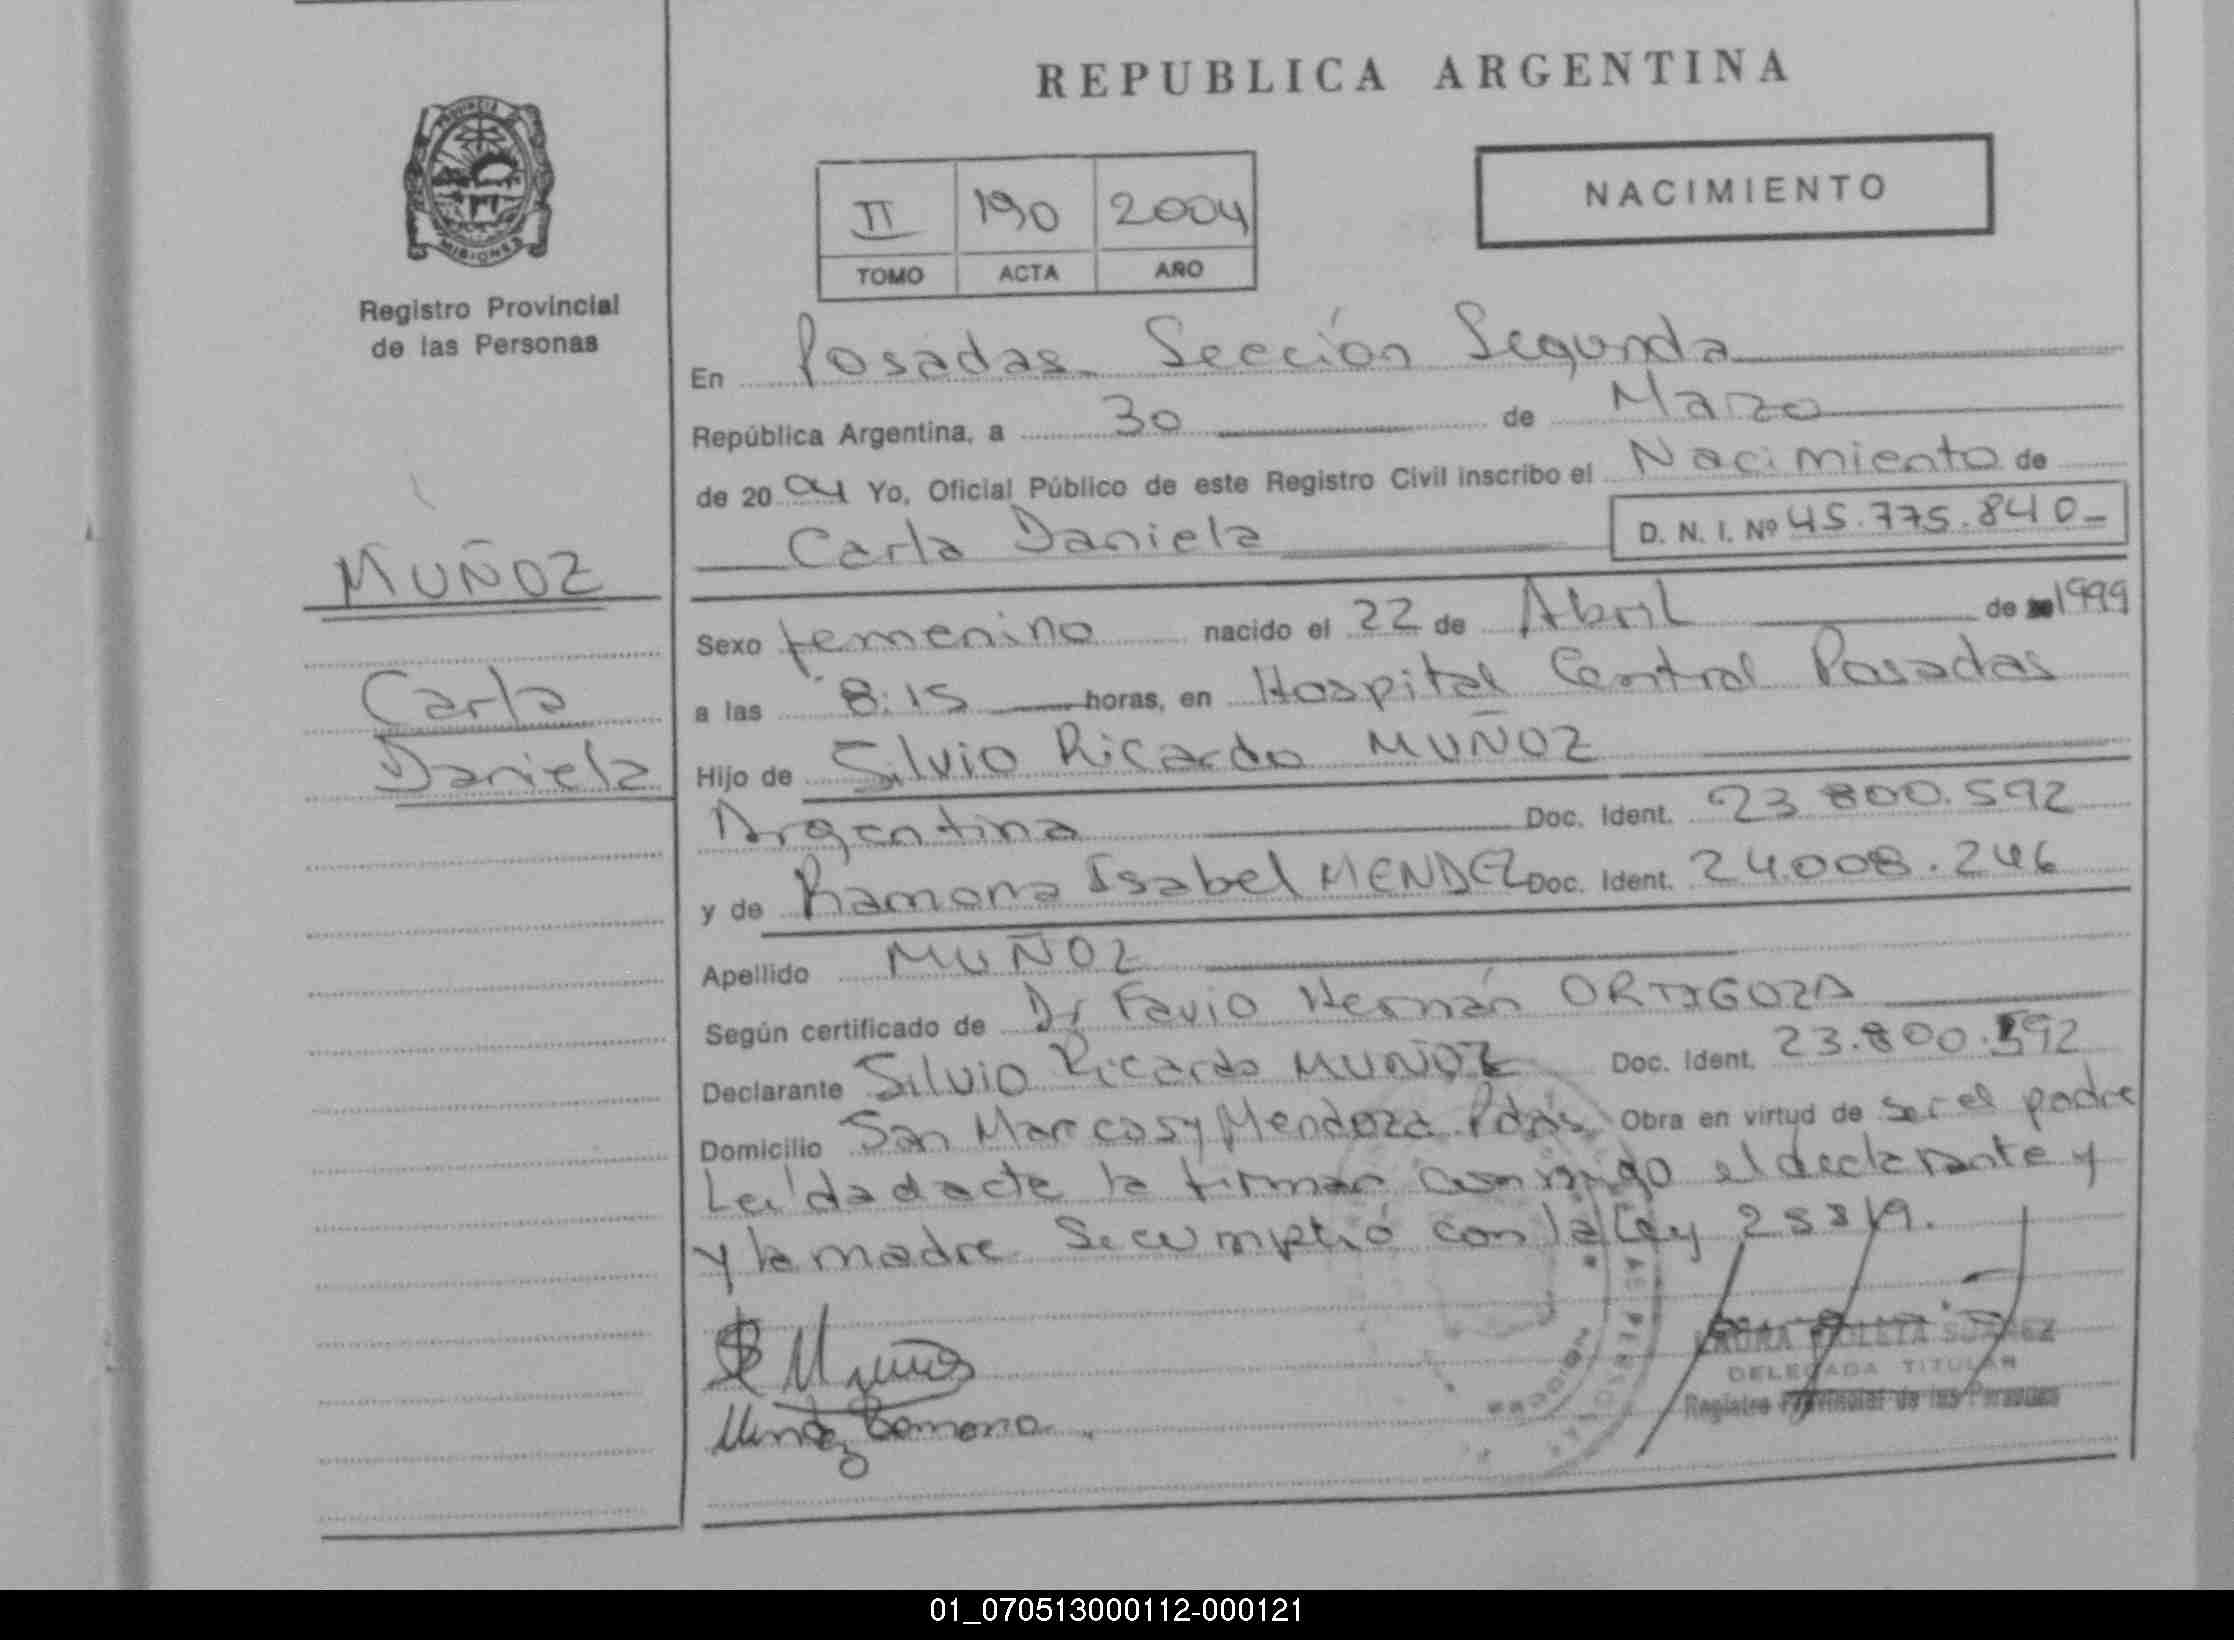 REPUBLICA ARGENTINA
PROVINCIA
MISIONES
Registro Provincial
de las Personas
NACIMIENTO
II 190 2004
TOMO ACTA AÑO
MUÑOZ
Carla
Daniela
En Posadas Sección Segunda
República Argentina, a 30 de Marzo
de 2004 Yo, Oficial Público de este Registro Civil inscribo el Nacimiento de
Carla Daniela D. N. I. Nº 45.775.840-
Sexo femenino nacido el 22 de Abril de 1999
a las 8:15 horas, en Hospital Central Posadas
Hijo de Silvio Ricardo MUÑOZ
Argentina Doc. Ident. 23.800.592
y de Ramona Isabel MENDEZ Doc. Ident. 24.008.246
Apellido MUÑOZ
Según certificado de Dr Favio Hernán ORTIGOZA
Declarante Silvio Ricardo MUÑOZ Doc. Ident. 23.800.592
Domicilio San Marcos y Mendoza Pdas Obra en virtud de ser el padre
Leída el acta la firman conmigo el declarante y
y la madre Se cumplió con la Ley
Muñoz
Mendez Ramona
LAURA VIOLETA SUAREZ
DELEGADA TITULAR
Registro Provincial de las Personas
01_070513000112-000121